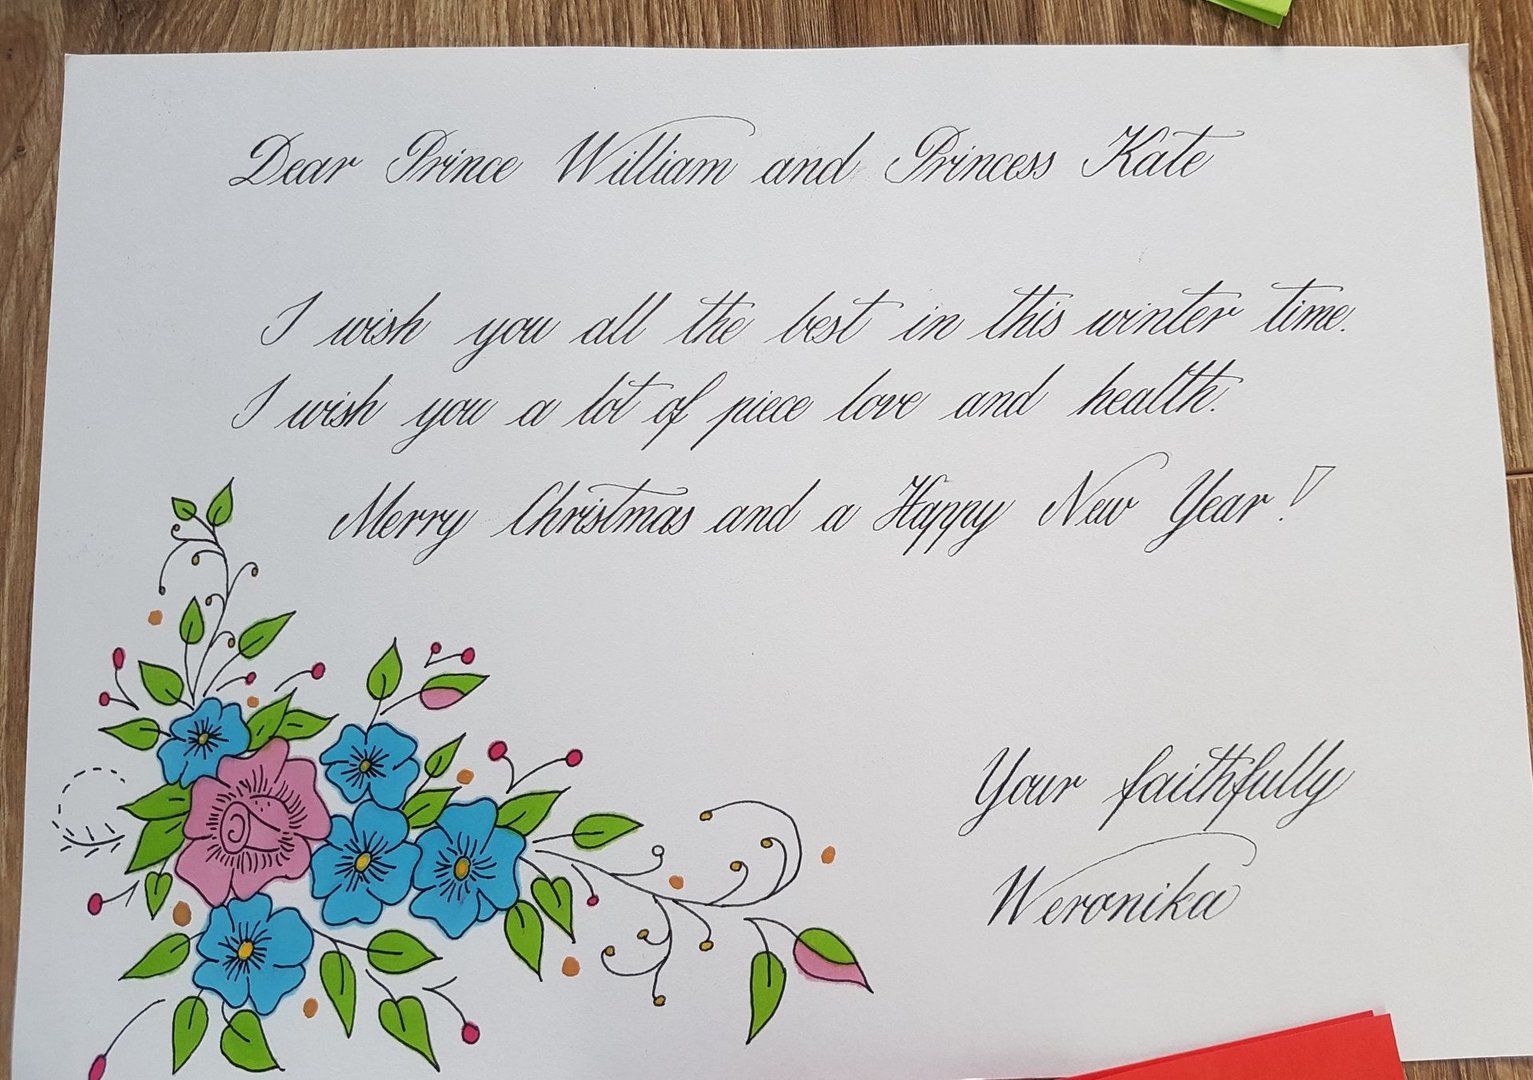 Dear Prince William and Princess Kate
I wish you all the best in this winter time.
I wish you a lot of piece love and health.
Merry Christmas and a Happy New Year!
Your faithfully
Weronika